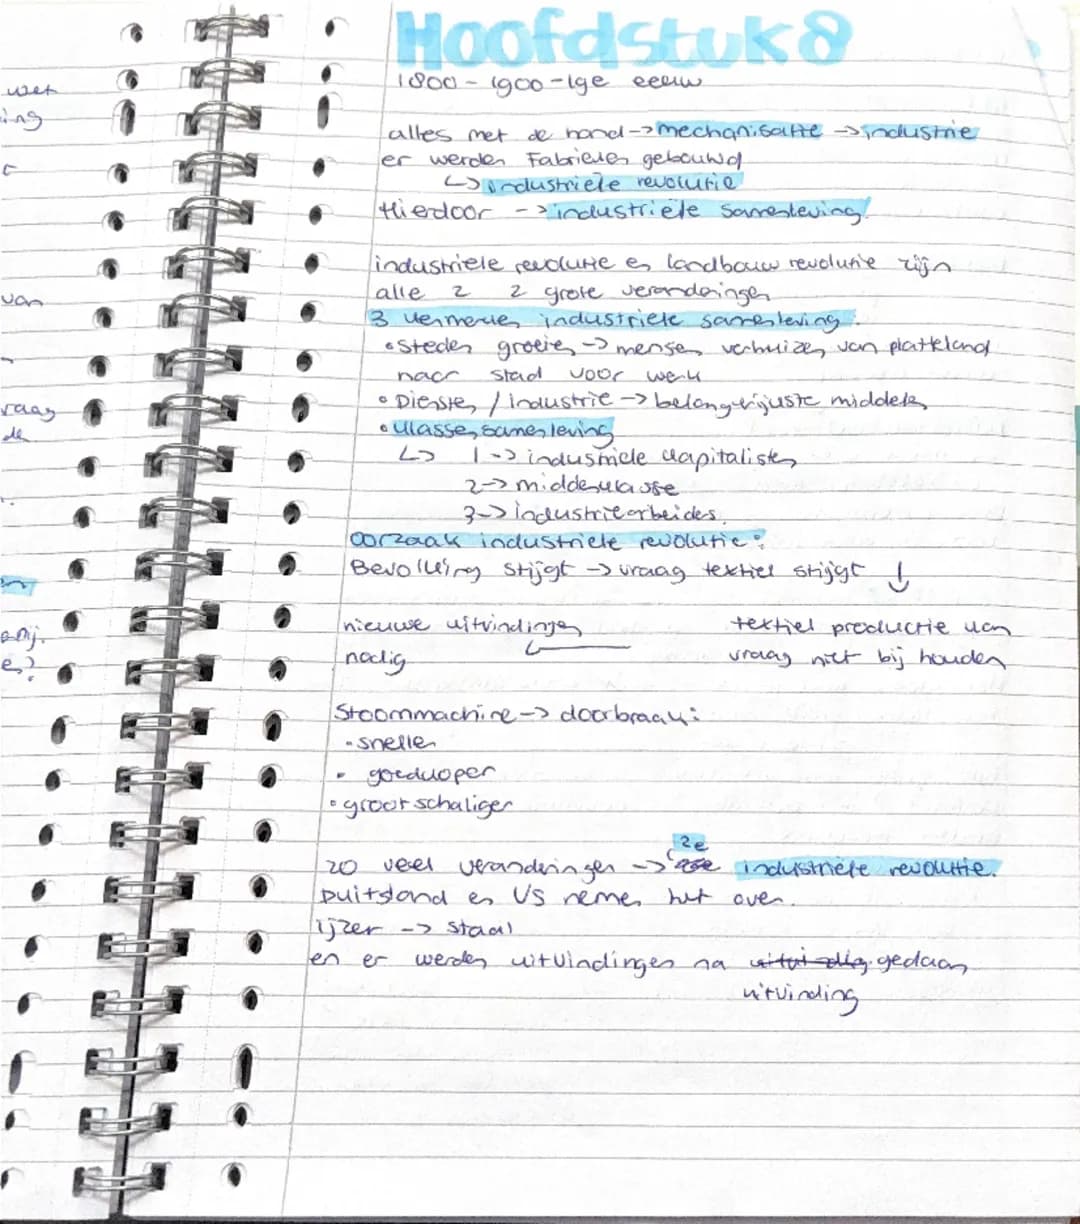 Hoofdstuk 8
1800 - 1900 - 19e eeuw
alles met de hand -> mechanisatie -> industrie
er werden Fabrieken gebouwd
↳ industriele revolutie
Hierdoor -> industriele samenleving.
industriele revolutie en landbouw revolutie zijn
alle 2 2 grote veranderingen
3 kenmerken industriele samenleving:
• Steden groeien -> mensen verhuizen van platteland
naar stad voor werk
• Diensten / industrie -> belangrijkste middelen
• Klassensamenleving
↳ 1 -> industriele kapitalisten
2 -> middenklasse
3 -> industriearbeides.
oorzaak industriele revolutie:
Bevolking stijgt -> vraag textiel stijgt ↓
nieuwe uitvindingen textiel productie kan
nodig ← vraag niet bij houden
Stoommachine -> doorbraak:
• sneller
• goedkoper
• grootschaliger
2e
zo veel veranderingen -> industriele revolutie.
Duitsland en VS nemen het over.
ijzer -> staal
en er werden uitvindingen na gedaan
uitvinding
wet
ing
van
vraag
de
en
e?